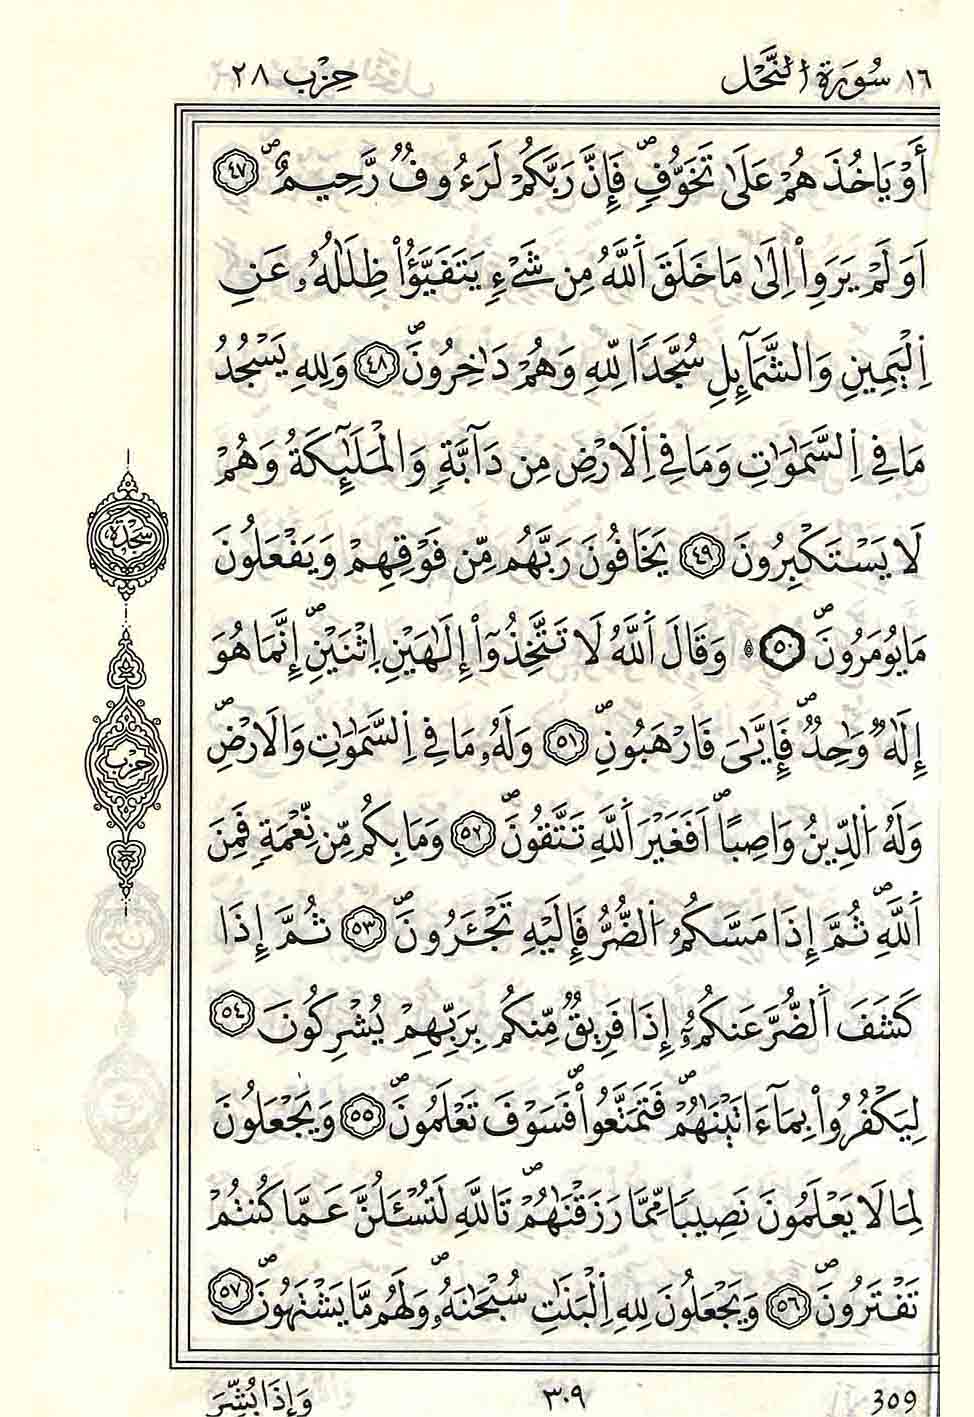 ١٦ سُورَةُ اُ۬لنَّحْلِ حِزْب ٢٨
أَوْ يَاخُذَهُمْ عَلَىٰ تَخَوُّفٖۖ فَإِنَّ رَبَّكُمْ لَرَءُوفٞ رَّحِيمٌۖ ٤٧
اَوَلَمْ يَرَوِاْ اِلَىٰ مَا خَلَقَ اَ۬للَّهُ مِن شَےْءٖ يَتَفَيَّؤُاْ ظِلَٰلُهُۥ عَنِ
اِ۬لْيَمِينِ وَالشَّمَآئِلِ سُجَّداٗ لِّلهِ وَهُمْ دَٰخِرُونَۖ ٤٨ وَلِلهِ يَسْجُدُ
مَا فِے اِ۬لسَّمَٰوَٰتِ وَمَا فِے اِ۬لَارْضِ مِن دَآبَّةٖ وَالْمَلَٰٓئِكَةُ وَهُمْ
لَا يَسْتَكْبِرُونَ ٤٩ يَخَافُونَ رَبَّهُم مِّن فَوْقِهِمْ وَيَفْعَلُونَ
مَا يُومَرُونَۖ ٥٠ وَقَالَ اَ۬للَّهُ لَا تَتَّخِذُوٓاْ إِلَٰهَيْنِ اِ۪ثْنَيْنِۖ إِنَّمَا هُوَ
إِلَٰهٞ وَٰحِدٞۖ فَإِيَّٰيَ فَارْهَبُونِۖ ٥١ وَلَهُۥ مَا فِے اِ۬لسَّمَٰوَٰتِ وَالَارْضِۖ
وَلَهُ اُ۬لدِّينُ وَاصِباًۖ اَفَغَيْرَ اَ۬للَّهِ تَتَّقُونَۖ ٥٢ وَمَا بِكُم مِّن نِّعْمَةٖ فَمِنَ
اَ۬للَّهِۖ ثُمَّ إِذَا مَسَّكُمُ اُ۬لضُّرُّ فَإِلَيْهِ تَجْـَٔرُونَۖ ٥٣ ثُمَّ إِذَا
كَشَفَ اَ۬لضُّرَّ عَنكُمُۥٓ إِذَا فَرِيقٞ مِّنكُم بِرَبِّهِمْ يُشْرِكُونَ ٥٤
لِيَكْفُرُواْ بِمَآ ءَاتَيْنَٰهُمْۖ فَتَمَتَّعُواْۖ فَسَوْفَ تَعْلَمُونَۖ ٥٥ وَيَجْعَلُونَ
لِمَا لَا يَعْلَمُونَ نَصِيباٗ مِّمَّا رَزَقْنَٰهُمْۖ تَاللَّهِ لَتُسْـَٔلُنَّ عَمَّا كُنتُمْ
تَفْتَرُونَۖ ٥٦ وَيَجْعَلُونَ لِلهِ اِ۬لْبَنَٰتِ سُبْحَٰنَهُۥۖ وَلَهُم مَّا يَشْتَهُونَۖ ٥٧
سَجْدَة
حِزْب
وَإِذَا بُشِّرَ ٣٠٩ 359